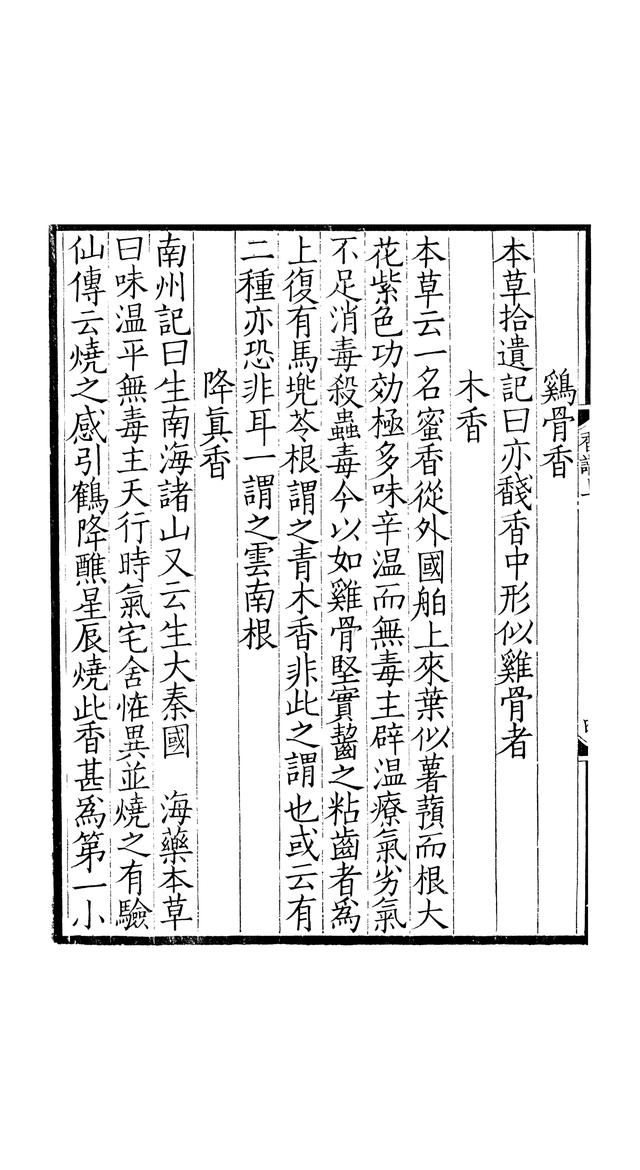 鷄骨香
本草拾遺記曰亦馢香中形似雞骨者
木香
本草云一名蜜香從外國舶上來葉似薯蕷而根大
花紫色功効極多味辛温而無毒主辟温療氣劣氣
不足消毒殺蟲毒今以如雞骨堅實齧之粘齒者為
上復有馬兠苓根謂之青木香非此之謂也或云有
二種亦恐非耳一謂之雲南根
降眞香
南州記曰生南海諸山又云生大秦國　海藥本草
曰味温平無毒主天行時氣宅舍恠異並燒之有驗
仙傳云燒之感引鶴降醮星辰燒此香甚為第一小